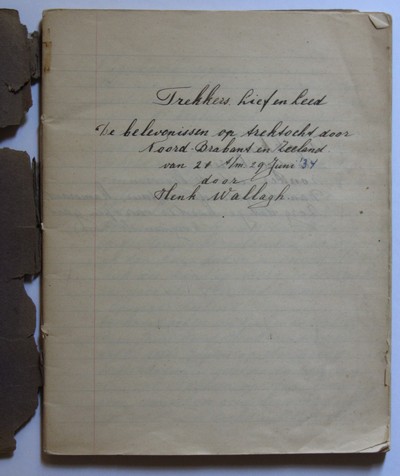 Trekkers Lief en Leed
De belevenissen op trektocht door
Noord-Brabant en Zeeland
van 21 t/m 29 Juni '34
door
Henk Wallagh